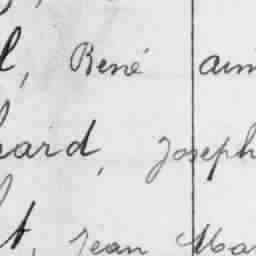 l, René aim
eard, Joseph
t, Jean Mar